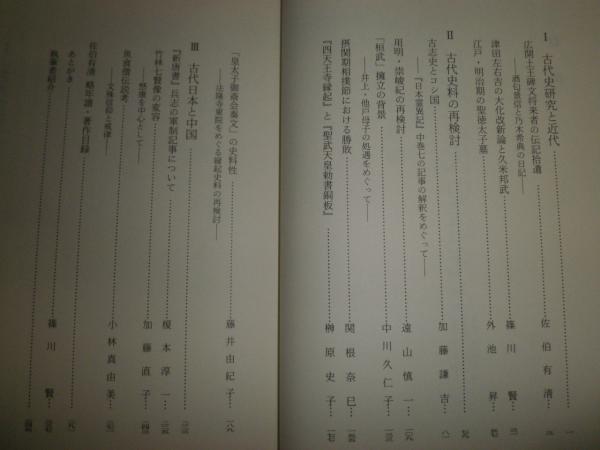 I 古代史研究と近代
広開土王碑文将来者の伝記拾遺 佐伯有清
――酒匂景信と乃木希典の日記――
津田左右吉の大化改新論と久米邦武 篠川賢
江戸・明治期の聖徳太子墓 外池昇
II 古代史料の再検討
古志史とコシ国 加藤謙吉
――『日本霊異記』中巻七の記事の解釈をめぐって――
用明・崇峻紀の再検討 遠山慎一
「桓武」擁立の背景 中川久仁子
――井上・他戸母子の処遇をめぐって――
摂関期相撲節における勝敗 関根奈巳
『四天王寺縁起』と『聖武天皇勅書銅板』 榊原史子
「皇太子御斎会奏文」の史料性 藤井由紀子
――法隆寺東院をめぐる縁起史料の再検討――
III 古代日本と中国
『新唐書』兵志の軍制記事について 榎本淳一
竹林七賢像の変容 加藤直子
――嵆康を中心として――
魚食僧伝説考 小林真由美
――文殊信仰と戒律――
佐伯有清 略年譜・著作目録
あとがき 篠川賢
執筆者紹介